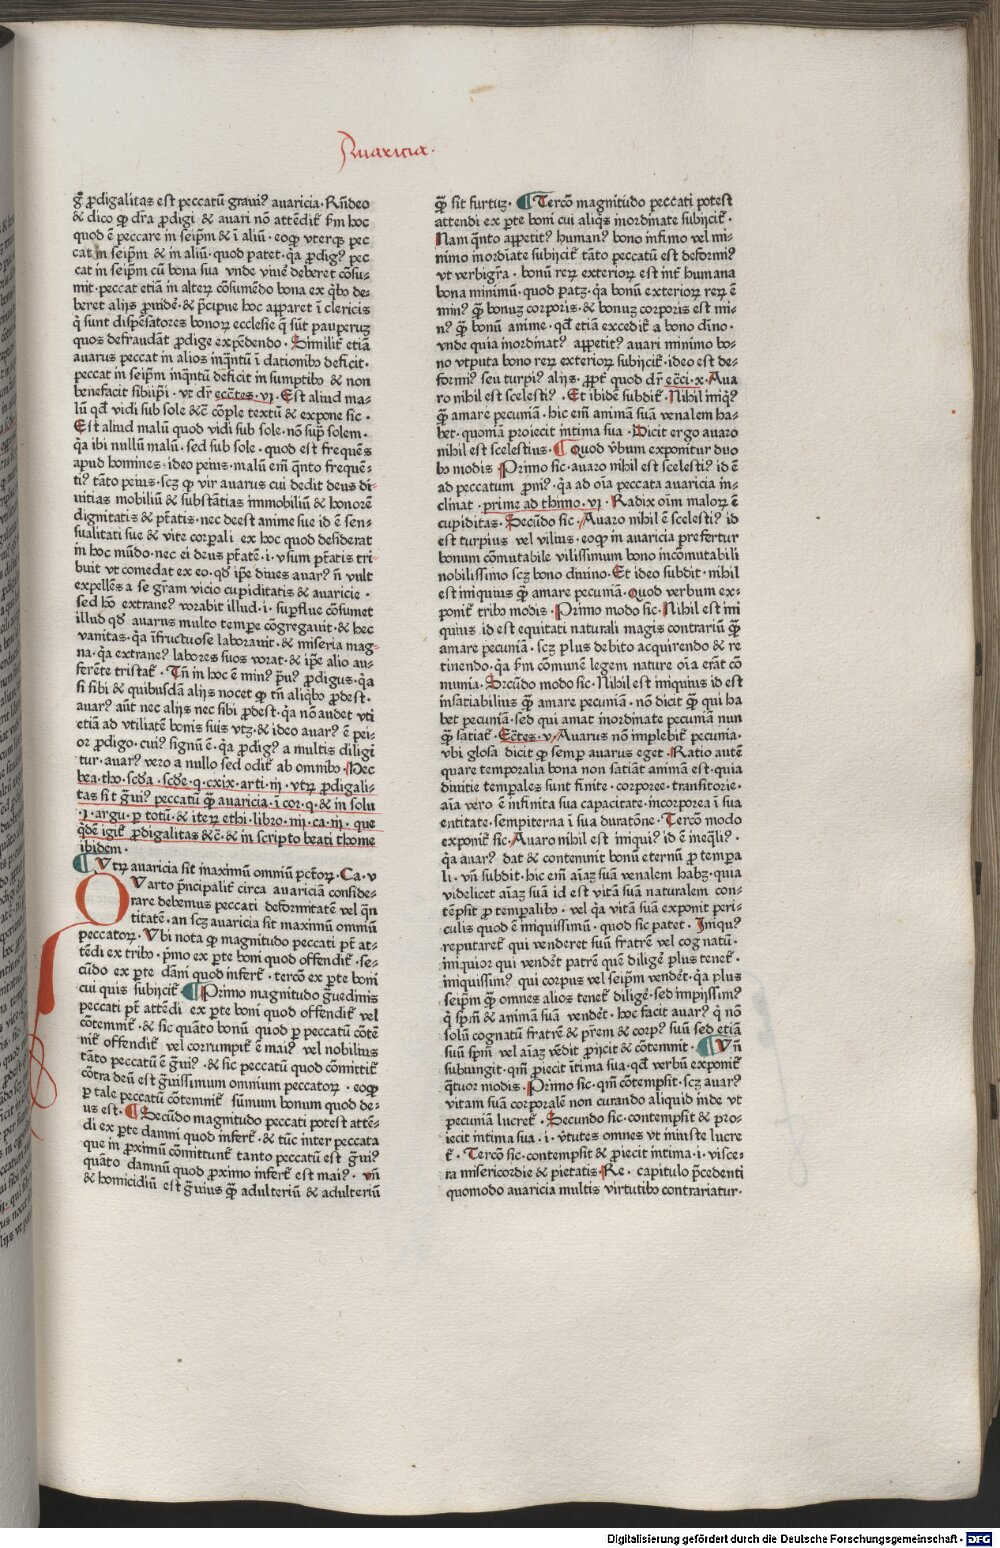 Auaricia.
g̃ ꝓdigalitas est peccatū grauiꝰ auaricia · Rñdeo
& dico ꝙ dr̃a ꝓdigi & auari nō attēdiť ẜm hoc
quod ē peccare in seip̄m & ī aliū · eoꝙ vterqꝫ pec
cat in seip̄m & in aliū · quod patet · q̇a ꝓdigꝰ pec
cat in seip̄m cū bona sua vnde viuē deberet cōsu-
mit · peccat etiā in alteꝝ cōsumēdo bona ex q̇bꝰ de-
beret alijs ꝓuidē · & p̄cipue hoc apparet ī clericis
q̇ sunt dispēsatores bonoꝝ ecclesie q̇ sūt pauperuꝫ
quos defraudāt ꝓdige expēdendo · Similiť etiā
auarus peccat in alios inq̄ntū ī dationibꝰ deficit ·
peccat in seip̄m inq̄ntū deficit in sumptibꝰ & non
benefacit sibiip̄i · vt dr̄ ecc̄tes · vj · Est aliud ma-
lū qđ vidi sub sole &c̄ cōple textū & expone sic ·
Est aliud malū quod vidi sub sole · nō sup̄ solem ·
q̇a ibi nullū malū · sed sub sole · quod est frequēs
apud homines · ideo peius · malū em̄ q̄nto frequē-
tiꝰ tāto peius · scꝫ ꝙ vir auarus cui dedit deus di-
uitias mobiliū & substātias immobiliū & honorē
dignitatis & pťatis · nec deest anime sue id ē sen-
sualitati sue & vite corꝑali ex hoc quod desiderat
in hoc mūdo · nec ei deus pťatē · i · vsum pťatis tri-
buit vt comedat ex eo · qđ ip̄e diues auarꝰ n̄ vult
expellēs a se gr̄am vicio cupiditatis & auaricie ·
sed hō extraneꝰ vorabit illud · i · suꝑflue cōsumet
illud qđ auarus multo tempe cōgregauit · & hec
vanitas · q̇a īfructuose laborauit · & miseria mag-
na · q̇a extraneꝰ labores suos vorat · & ip̄e alio au-
ferēte tristať · Tn̄ in hoc ē minꝰ p̄uꝰ ꝓdigus · q̇a
si sibi & quibusdā alijs nocet ꝙ tn̄ aliq̇bꝰ ꝓdest ·
auarꝰ aūt nec alijs nec sibi ꝓdest · q̇a nō audet vti
etiā ad vtilitatē bonis suis vtꝫ · & ideo auarꝰ ē pei-
or ꝓdigo · cuiꝰ signū ē · q̇a ꝓdigꝰ a multis diligi
tur · auarꝰ vero a nullo sed odiť ab omnibꝰ · Hec
bea · tho · scđa · scđe · q · cxix · arti · iij · vtꝝ ꝓdigali-
tas sit g̃uiꝰ peccatū ꝙ̄ auaricia · ī cor · q · & in solu
· j · argu · ꝑ totū & iteꝝ ethi · libro · iiij · ca · iij · que
q̇dē igiť ꝓdigalitas &c̄ · & in scripto beati thome
ibidem ·
¶ Vtꝝ auaricia sit maximū omniū pctōꝝ · Ca · v
QVarto p̄ncipaliť circa auariciā conside-
rare debemus peccati deformitatē vel q̄n
titatē · an scꝫ auaricia sit maximū omniū
peccatoꝝ · Vbi nota ꝙ magnitudo peccati pt̄ at-
tēdi ex tribꝰ · p̄mo ex ꝑte boni quod offendiť · se-
cūdo ex ꝑte dāni quod inferť · tercō ex ꝑte boni
cui quis subijciť ¶ Primo magnitudo g̃uedinis
peccati pt̄ attēdi ex ꝑte boni quod offendiť vel
cōtemniť · & sic quāto bonū quod ꝑ peccatū cōtē
niť offendiť vel corrumpiť ē maiꝰ vel nobilius
tāto peccatū ē g̃uiꝰ · & sic peccatū quod cōmittiť
cōtra deū est g̃uissimum omnium peccatoꝝ · eoꝙ
ꝑ tale peccatū cōtemniť sūmum bonum quod de-
us est · ¶ Secūdo magnitudo peccati potest attē-
di ex ꝑte damni quod inferť · & tūc inter peccata
que in ꝓximū cōmittunť tanto peccatū est g̃uiꝰ
quāto damnū quod proximo inferť est maiꝰ · vn̄
& homicidiū est g̃uius ꝙ̄ adulteriū & adulteriū
ꝙ̄ sit furtuꝫ · ¶ Tercō magnitudo peccati potest
attendi ex ꝑte boni cui aliq̇s inordinate subijciť ·
Nam q̄nto appetitꝰ humanꝰ bono infimo vel mi-
nimo inordīate subijciť tāto peccatū est deformiꝰ
vt verbigr̃a · bonū reꝝ exterioꝝ est int̄ humana
bona minimū · quod patꝫ · q̇a bonū exterioꝝ reꝝ ē
minꝰ ꝙ̄ bonuꝫ corporis · & bonuꝫ corporis est mi-
nꝰ ꝙ̄ bonū anime · qđ etiā excediť a bono diuno ·
vnde quia inordinatꝰ appetitꝰ auari minimo bo-
no vtputa bono reꝝ exterioꝝ subijciť · ideo est de-
formiꝰ seu turpiꝰ alijs · ꝓpť quod dr̄ ecc̄i · x · Aua
ro nihil est scelestiꝰ · Et ibidē subdiť · Nihil iniq̇ꝰ
ꝙ̄ amare pecuniā · hic em̄ animā suā venalem ha-
bet · quoniā proiecit intima sua · Dicit ergo auaro
nihil est scelestius · ¶ Quod v̄bum exponitur duo
bꝰ modis · Primo sic · auaro nihil est scelestiꝰ id ē
ad peccatum ꝓniꝰ · q̇a ad oīa peccata auaricia in-
clinat · prime ad thimo · vj · Radix oīm maloꝝ ē
cupiditas · Secūdo sic · Auaro nihil ē scelestiꝰ id
est turpius vel vilius · eoꝙ in auaricia prefertur
bonum cōmutabile vilissimum bono incōmutabili
nobilissimo scꝫ bono diuino · Et ideo subdit · nihil
est iniquius ꝙ̄ amare pecuniā · Quod verbum ex-
poniť tribꝰ modis · Primo modo sic · Nihil est ini
quius id est equitati naturali magis contrariū ꝙ̄
amare pecuniā · scꝫ plus debito acquirendo & re
tinendo · q̇a ẜm cōmunē legem nature oīa erāt cō
munia · Secūdo modo sic · Nihil est iniquius id est
insatiabilius ꝙ̄ amare pecuniā · nō dicit ꝙ̄ qui ha
bet pecuniā · sed qui amat inordinate pecuniā nun
ꝙ̄ satiať · Ecc̄tes · v · Auarus nō implebiť pecunia ·
vbi glosa dicit ꝙ semꝑ auarus eget · Ratio autē
quare temporalia bona non satiāt animā est · quia
diuitie temꝑales sunt finite · corporee · transitorie ·
aīa vero ē infinita sua capacitate · incorporea ī sua
entitate · sempiterna ī sua duratōne · Tercō modo
exponiť sic · Auaro nihil est iniquiꝰ id ē ineq̄liꝰ ·
q̇a auarꝰ dat & contemnit bonū eternū ꝓ tempora
li · vn̄ subdit · hic em̄ aīaꝫ suā venalem habꝫ · quia
videlicet aīaꝫ suā id est vitā suā naturalem con-
tēpsit ꝓ temꝑalibꝰ · vel q̇a vitā suā exponit peri-
culis quod ē iniquissimū · quod sic patet · Iniquꝰ
reputareť qui venderet suū fratrē vel cognatū ·
iniquior qui vendēt patrē quē diligē plus teneť ·
iniquissimꝰ qui corpus vel seip̄m vendēt · q̇a plus
seip̄m ꝙ̄ omnes alios teneť diligē · sed impijssimꝰ
q̇ sp̄m & animā suā vendēt · hoc facit auarꝰ q̇ nō
solū cognatū fratrē & pr̄em & corpꝰ suū sed etiā
suū sp̄m vel aīaꝫ vēdit ꝓijcit & cōtemnit · ¶ Vn̄
subiungit · qm̄ ꝓiecit ītima sua · qđ verbū exponiť
q̄tuor modis · Primo sic · qm̄ cōtempsit · scꝫ auarꝰ
vitam suā corporalē non curando aliquid inde vt
pecuniā lucreť · Secundo sic · contempsit & pro-
iecit intima sua · i · v̄tutes omnes vt iniuste lucre
ť · Tercō sic · contempsit & ꝓiecit intima · i · visce-
ra misericordie & pietatis · Re · capitulo p̄cedenti
quomodo auaricia multis virtutibꝰ contrariatur ·
Digitalisierung gefördert durch die Deutsche Forschungsgemeinschaft · DFG